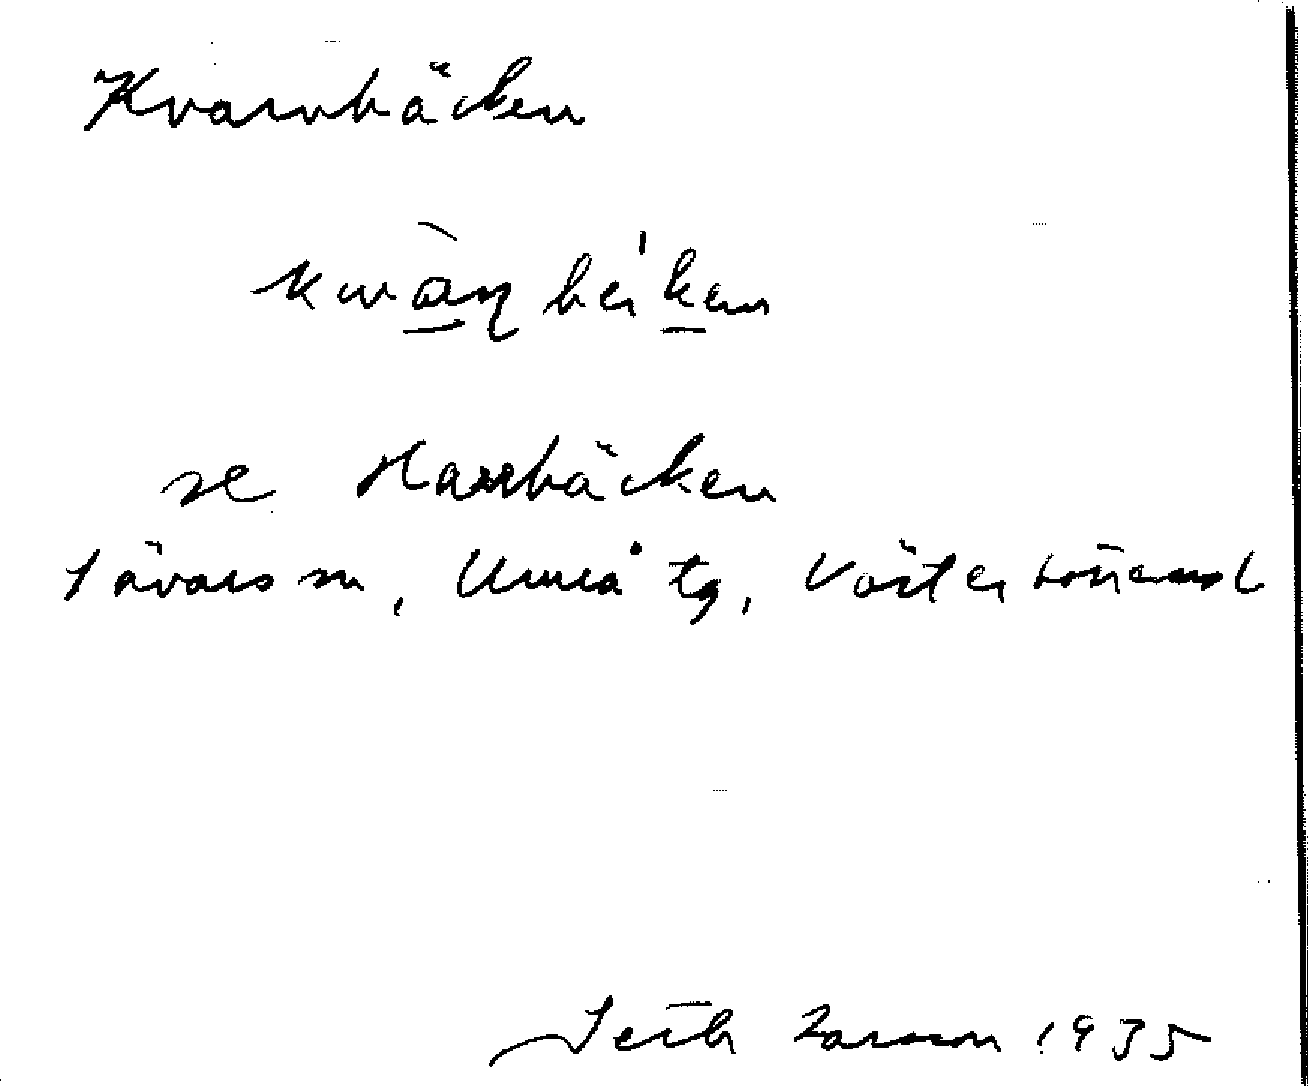 Kvarnbäcken
kwàɳbékan
se Harrbäcken
Sävars sn, Umeå tg, Västerbottens l
Seth Larsson 1935